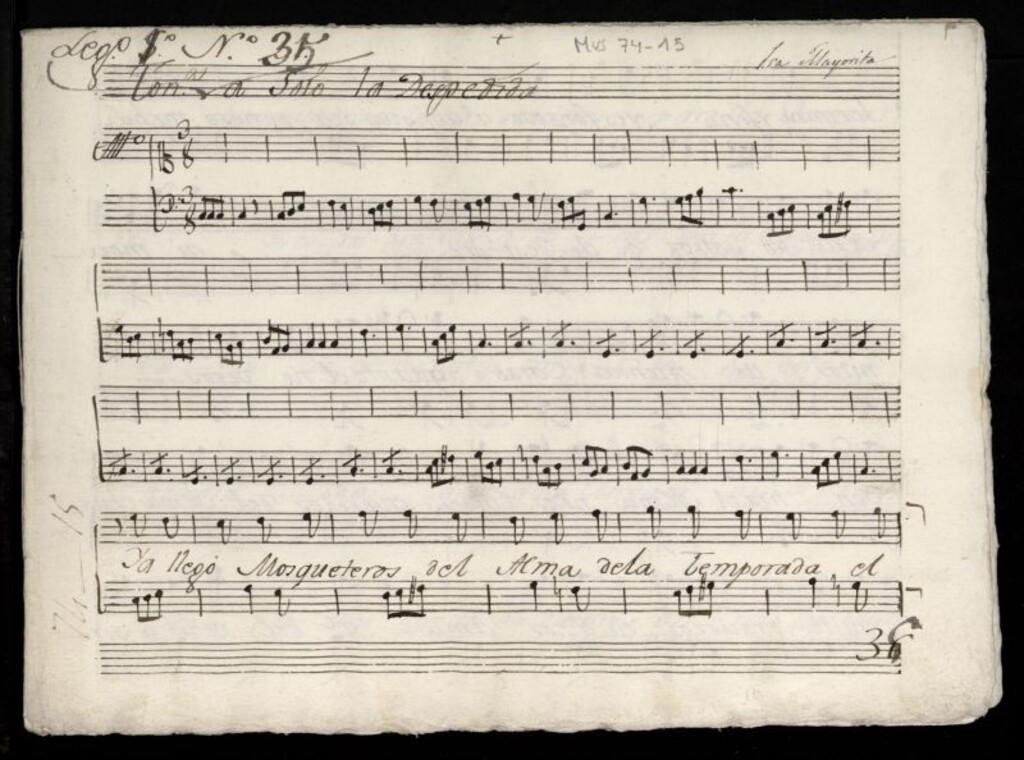 Leg.º 1.º N.º 35
Mus 74-15
Isa Mayorita
Ton.ª a Solo la Despedida
3
8
3
8
Ya llegó Mosqueteros del Alma dela Temporada el
74-15